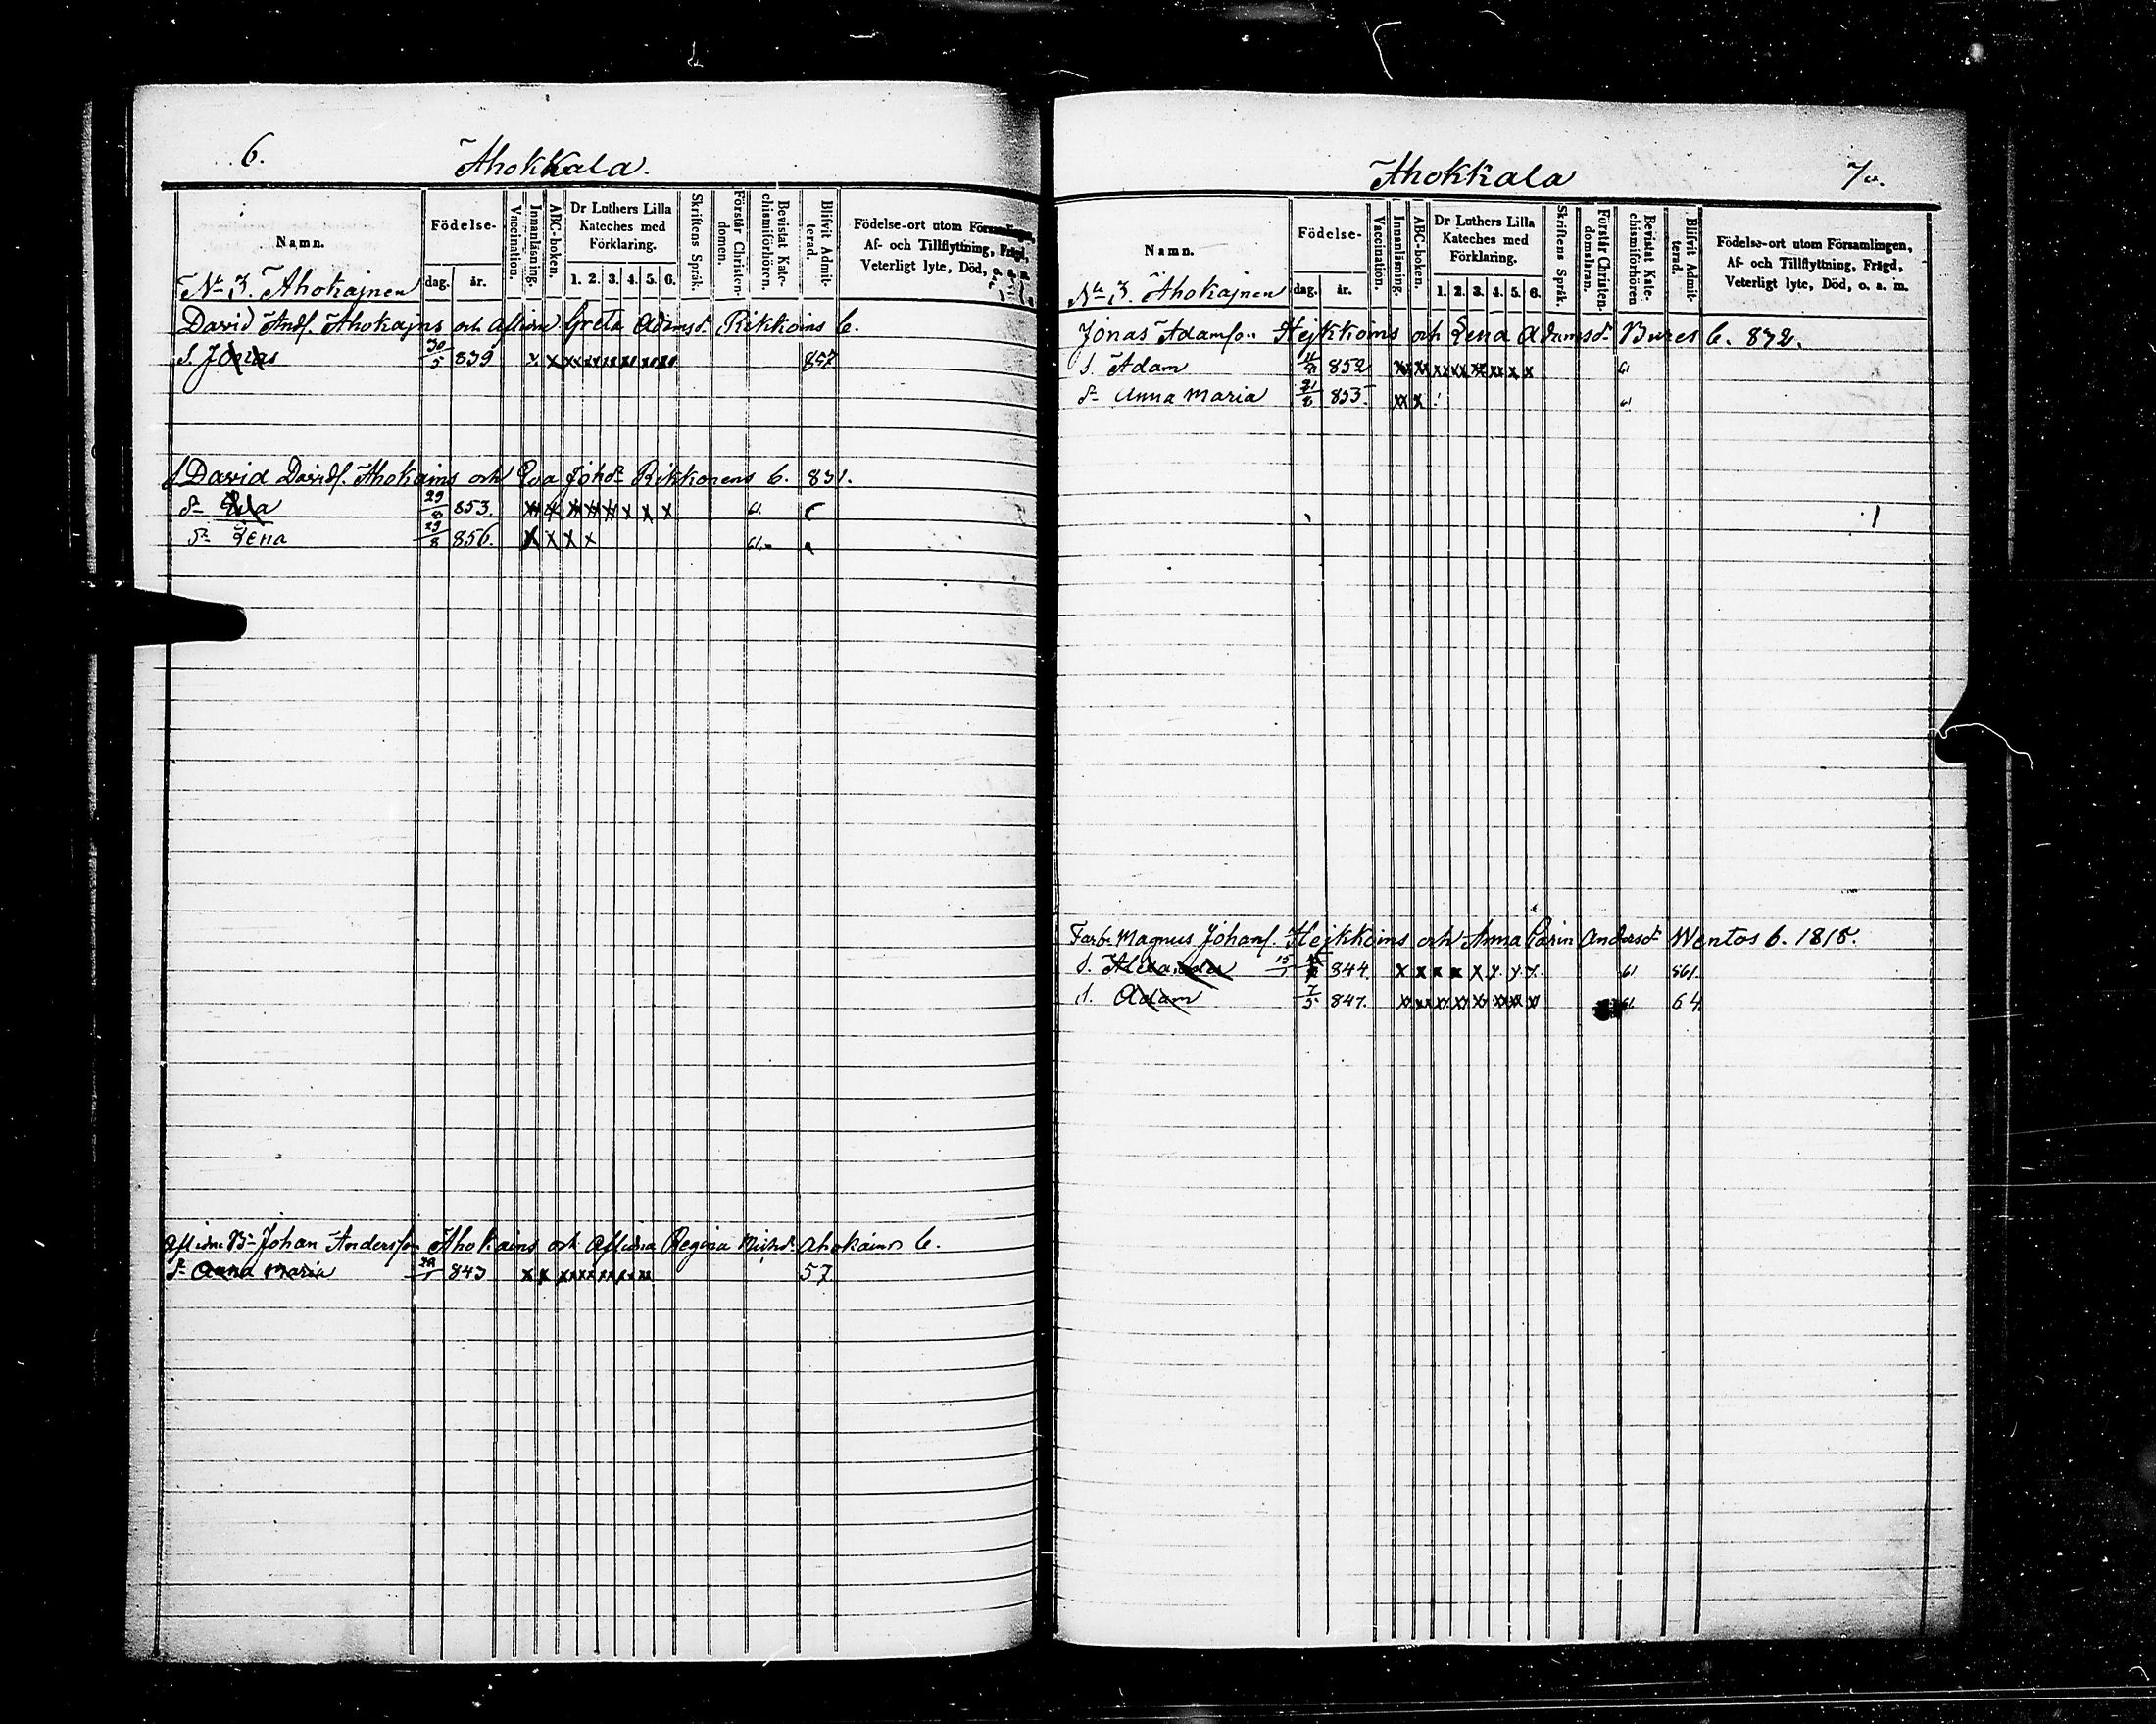 6.
Ahokkala.
Namn.
Födelse-
dag.
år.
Vaccination.
Innanläsning.
ABC-boken.
Dr Luthers Lilla
Kateches med
Förklaring.
1. 2. 3. 4. 5. 6.
Skriftens Språk.
Förstår Christen-
domen.
Bevistat Kate-
chismiförhören.
Blifvit Admit-
terad.
Födelse-ort utom Församlingen,
Af- och Tillflyttning, Frägd,
Veterligt lyte, Död, o. a. m.
No 3. Ahokajnen
David Andf. Ahokajns och Aflidne Greta Adamsdr Rikkoins b.
S. Jonas 30/5 839 x x xx xx xx xx xx xx 857
David Davidf. Ahokains och Eva Johdr Rikkonens b. 831.
Dr Eva 29/8 853. 61.
Dr Lena 29/8 856. x x x x 61.
Aflidne Br Johan Andersson Ahokains och Aflidna Regina Ahokains b.
Dr Anna Maria 843 57
Ahokkala
7.
Namn.
Födelse-
dag.
år.
Vaccination.
Innanläsning.
ABC-boken.
Dr Luthers Lilla
Kateches med
Förklaring.
1. 2. 3. 4. 5. 6.
Skriftens Språk.
Förstår Christen-
domsläran.
Bevistat Kate-
chismiförhören
Blifvit Admit-
terad.
Födelse-ort utom Församlingen,
Af- och Tillflyttning, Frägd,
Veterligt lyte, Död, o. a. m.
No 3. Ahokajnen
Jonas Adamson Hejkkoins och Lena Adamsdr Bures b. 832.
S. Adam 852 xx xx xx xx xx xx x x 61
Dr Anna Maria 21/8 855. xx x 61
Farbr Magnus Johanf. Hejkkoins och Anna Carin Andersdr Wentos b. 1818.
S. Alexander 15/1 844. x x x x x x x x 61 861.
S. Adam 7/5 847. 61 64